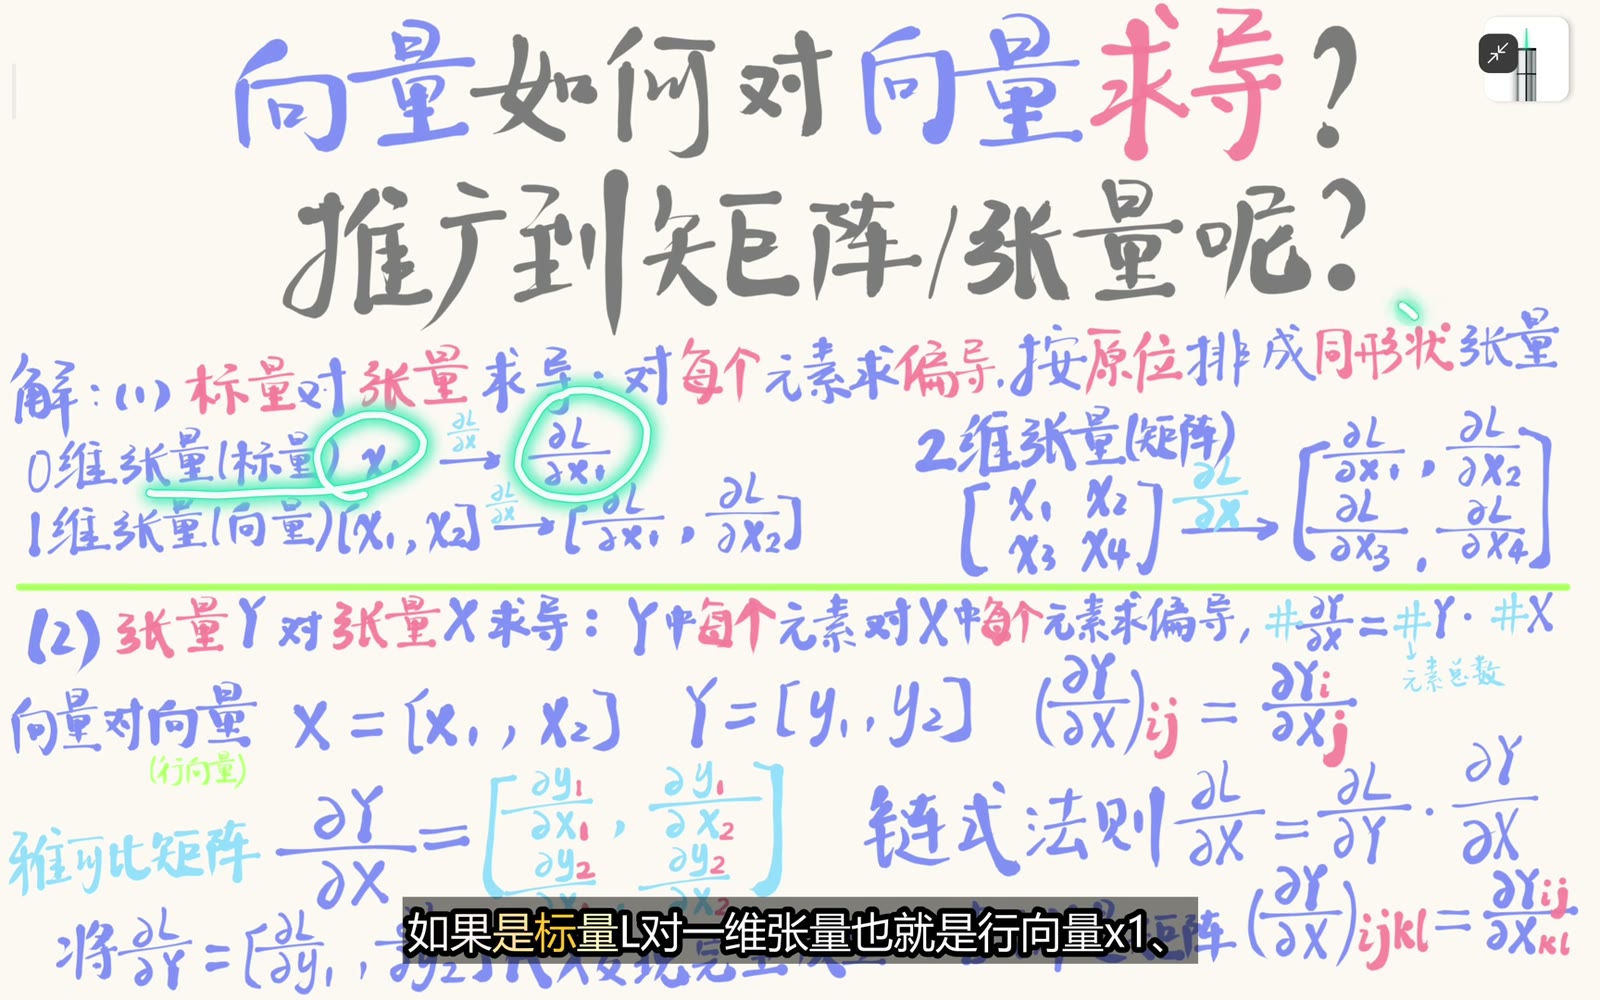 向量如何对向量求导？
推广到矩阵/张量呢？
解：(1) 标量对张量求导：对每个元素求偏导，按原位排成同形状张量
0维张量(标量) x₁ ∂L/∂x → ∂L/∂x₁
1维张量(向量) [x₁, x₂] ∂L/∂x → [∂L/∂x₁, ∂L/∂x₂]
2维张量(矩阵)
[x₁ x₂
x₃ x₄] ∂L/∂X → [∂L/∂x₁, ∂L/∂x₂
∂L/∂x₃, ∂L/∂x₄]
(2) 张量Y对张量X求导：Y中每个元素对X中每个元素求偏导，#∂Y/∂X = #Y · #X
↓
元素总数
向量对向量 X = [x₁, x₂] Y = [y₁, y₂] (∂Y/∂X)ij = ∂Yi/∂Xj
(行向量)
雅可比矩阵 ∂Y/∂X = [∂y₁/∂x₁, ∂y₁/∂x₂
∂y₂ ∂y₂/∂x₂]
链式法则 ∂L/∂X = ∂L/∂Y · ∂Y/∂X
将 ∂L/∂Y = [∂L/∂y₁,
阵 (∂Y/∂X)ijkl = ∂Yij/∂Xkl
如果是标量L对一维张量也就是行向量x1、